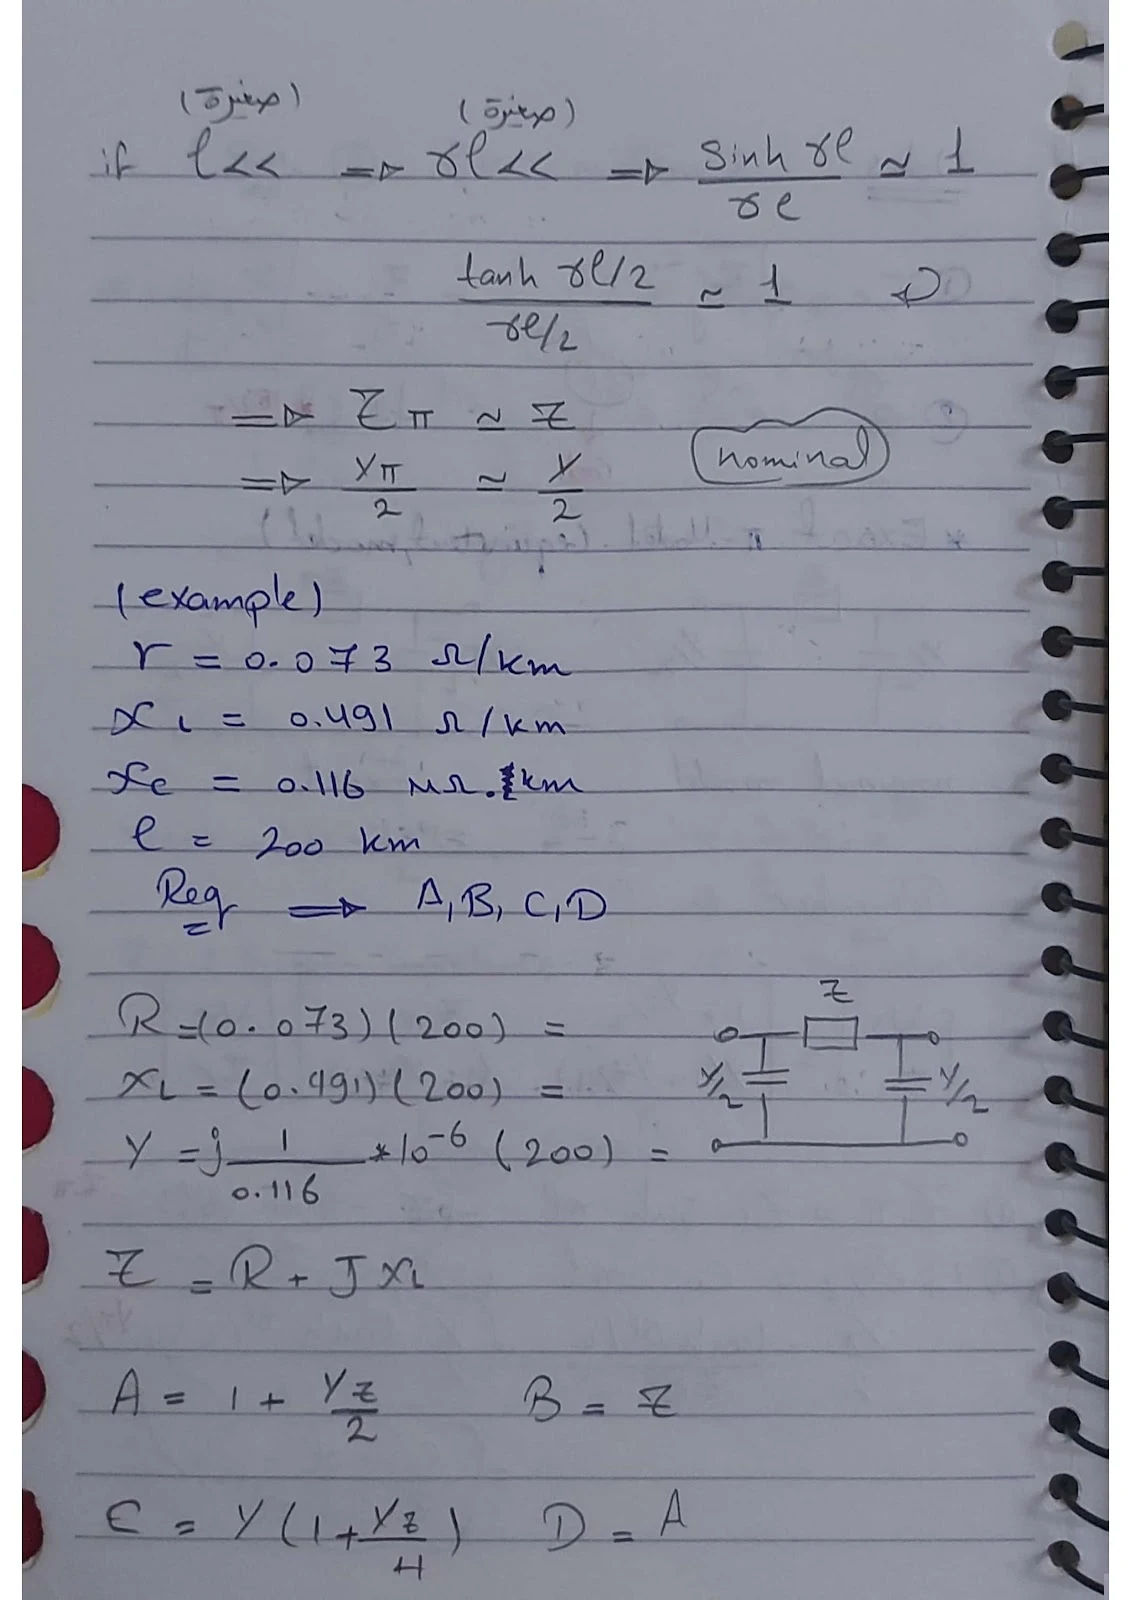 (صغيرة) (صغيرة)
if l<< ⇒ γl<< ⇒ sinh γl / γl ≃ 1
tanh γl/2 / γl/2 ≃ 1
⇒ Zπ ≃ Z
nominal
⇒ Yπ/2 ≃ Y/2
(example)
r = 0.073 Ω/km
xL = 0.491 Ω/km
xc = 0.116 MΩ.km
l = 200 km
Req ⇒ A, B, C, D
Z
R = (0.073)(200) =
xL = (0.491)(200) =
Y/2 Y/2
Y = j 1/0.116 *10^-6 (200) =
Z = R + J xL
A = 1 + YZ/2 B = Z
C = Y(1 + YZ/4) D = A